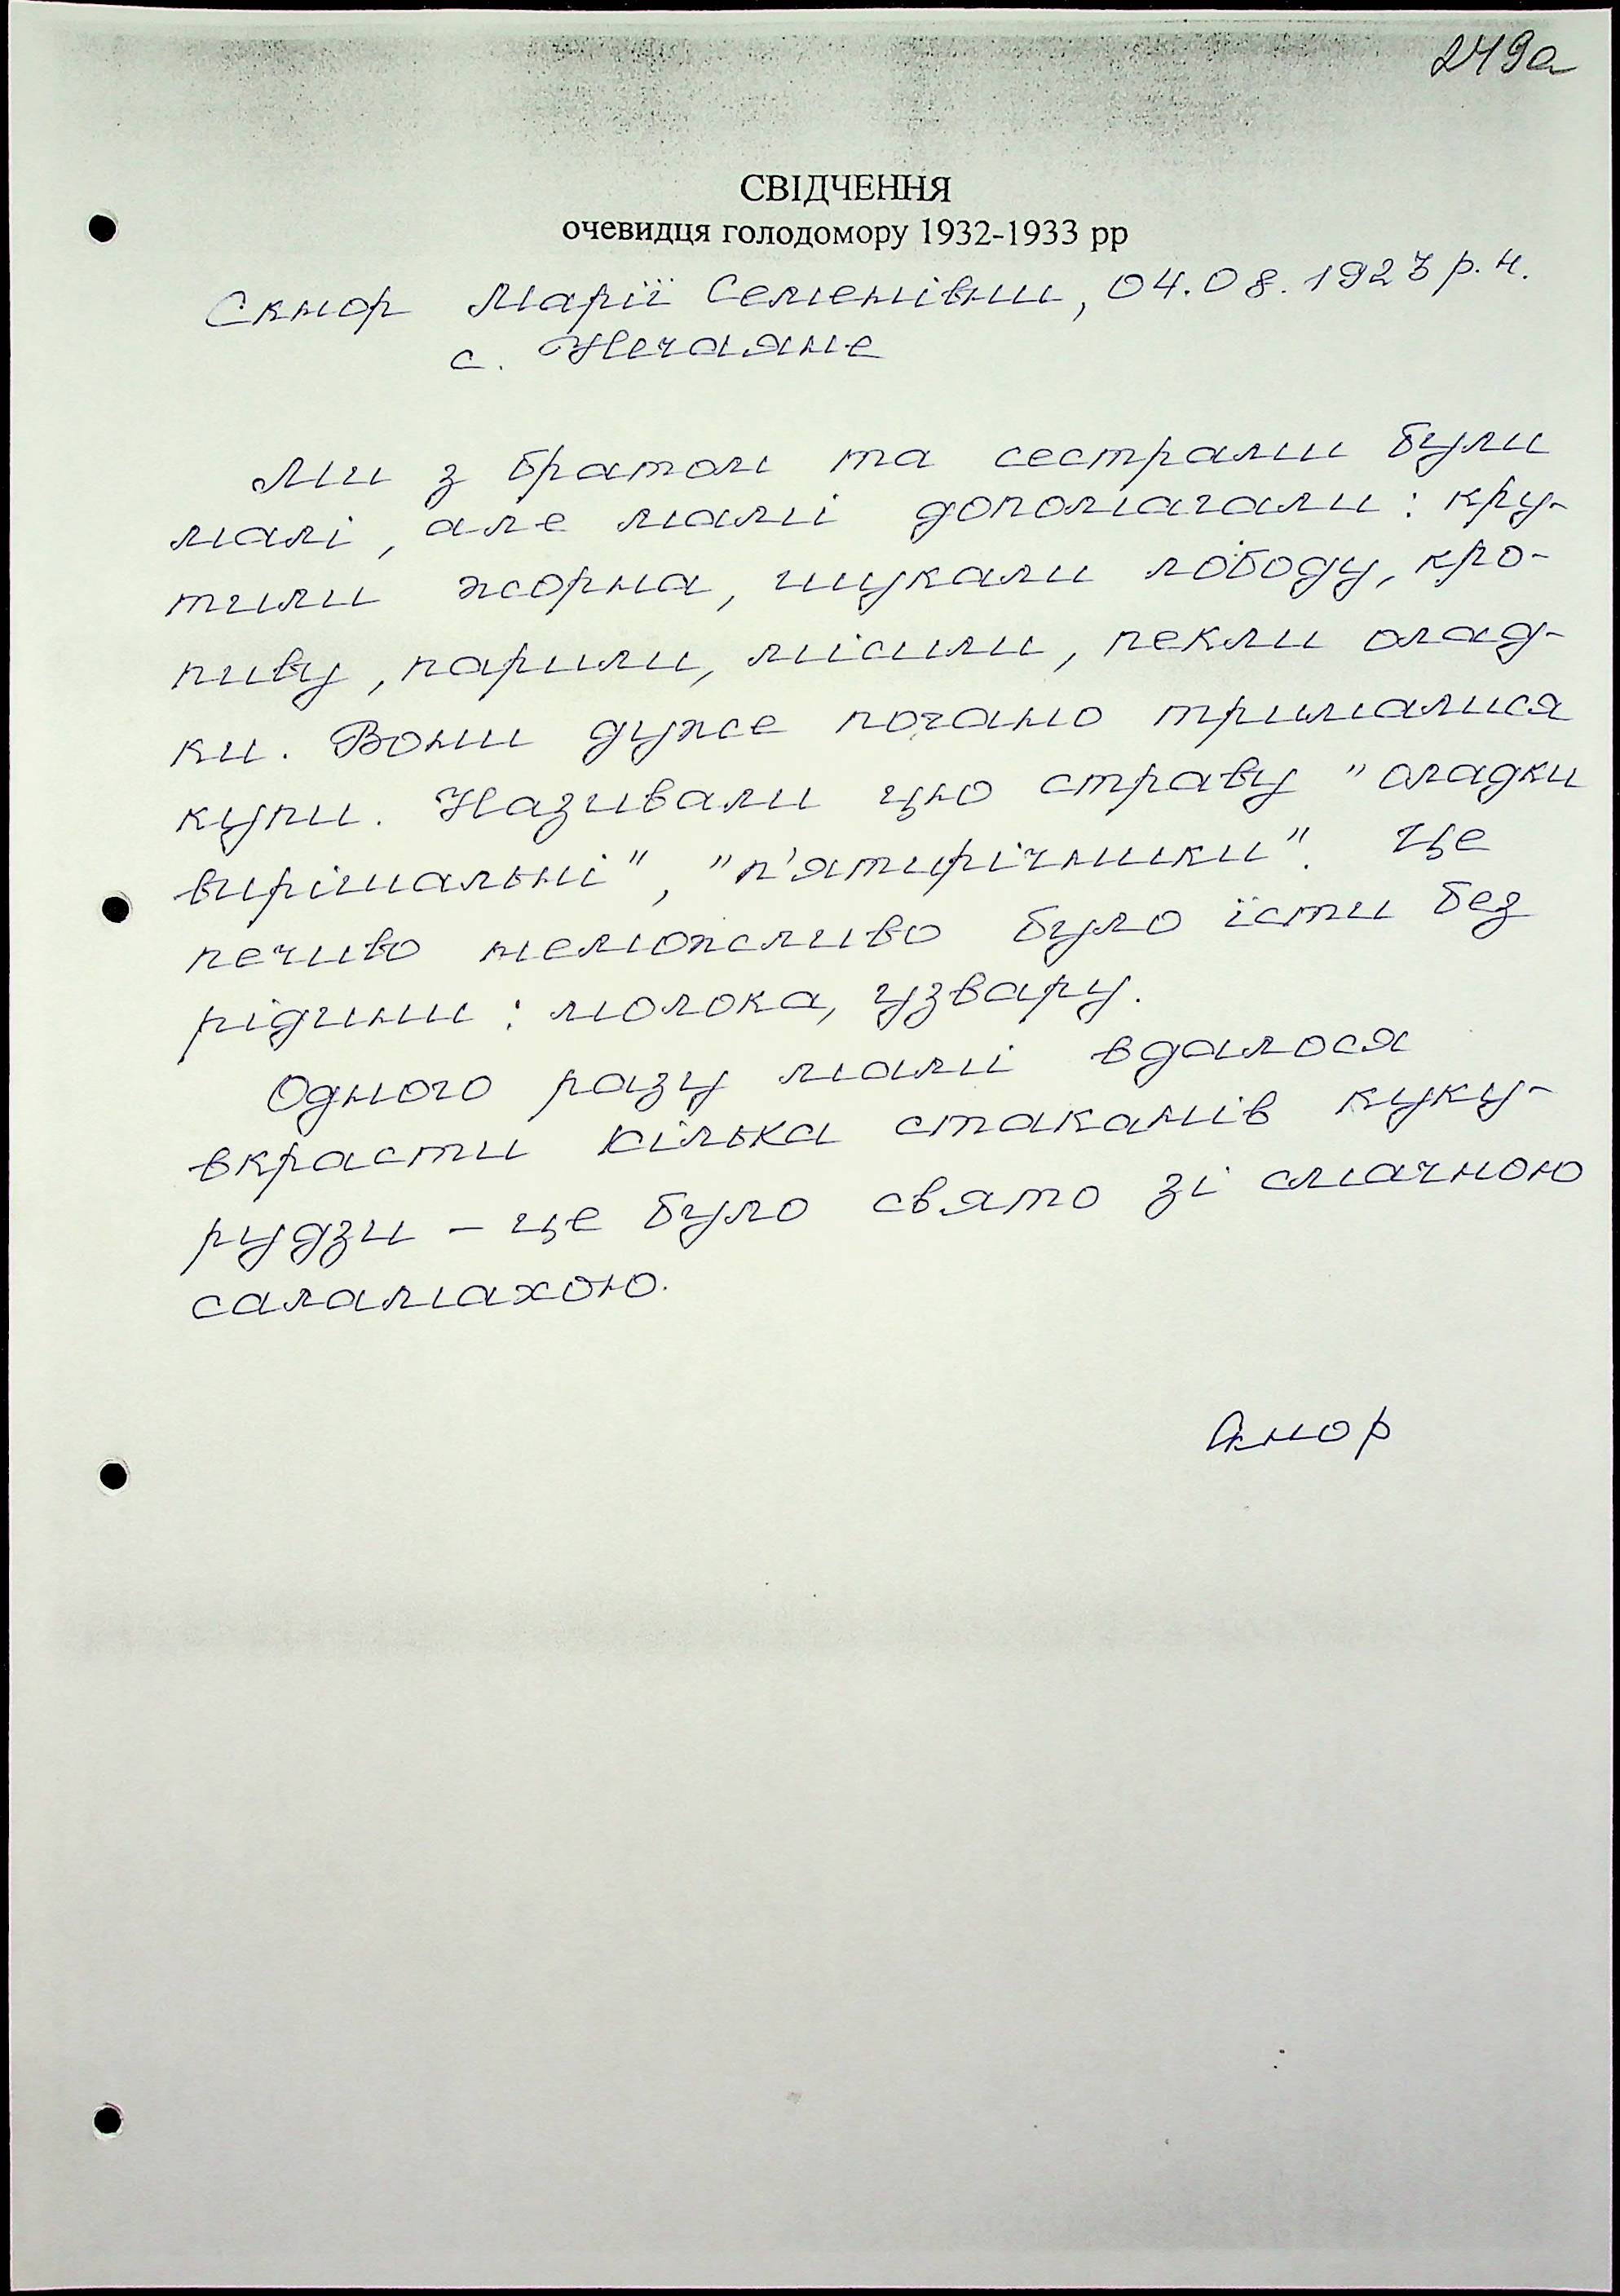 249а
СВІДЧЕННЯ
очевидця голодомору 1932-1933 рр
Скнор Марії Семенівни, 04.08.1923 р.н.
с. Нечаяне
Ми з братом та сестрами були
малі, але мамі допомагали: кру-
тили жорна, шукали лободу, кро-
пиву, парили, місили, пекли олад-
ки. Вони дуже погано трималися
купи. Називали цю страву "оладки
вирішальні", "п'ятирічники". Це
печиво неможливо було їсти без
рідини: молока, узвару.
Одного разу мамі вдалося
вкрасти кілька стаканів куку-
рудзи – це було свято зі смачною
саламахою.
Скнор